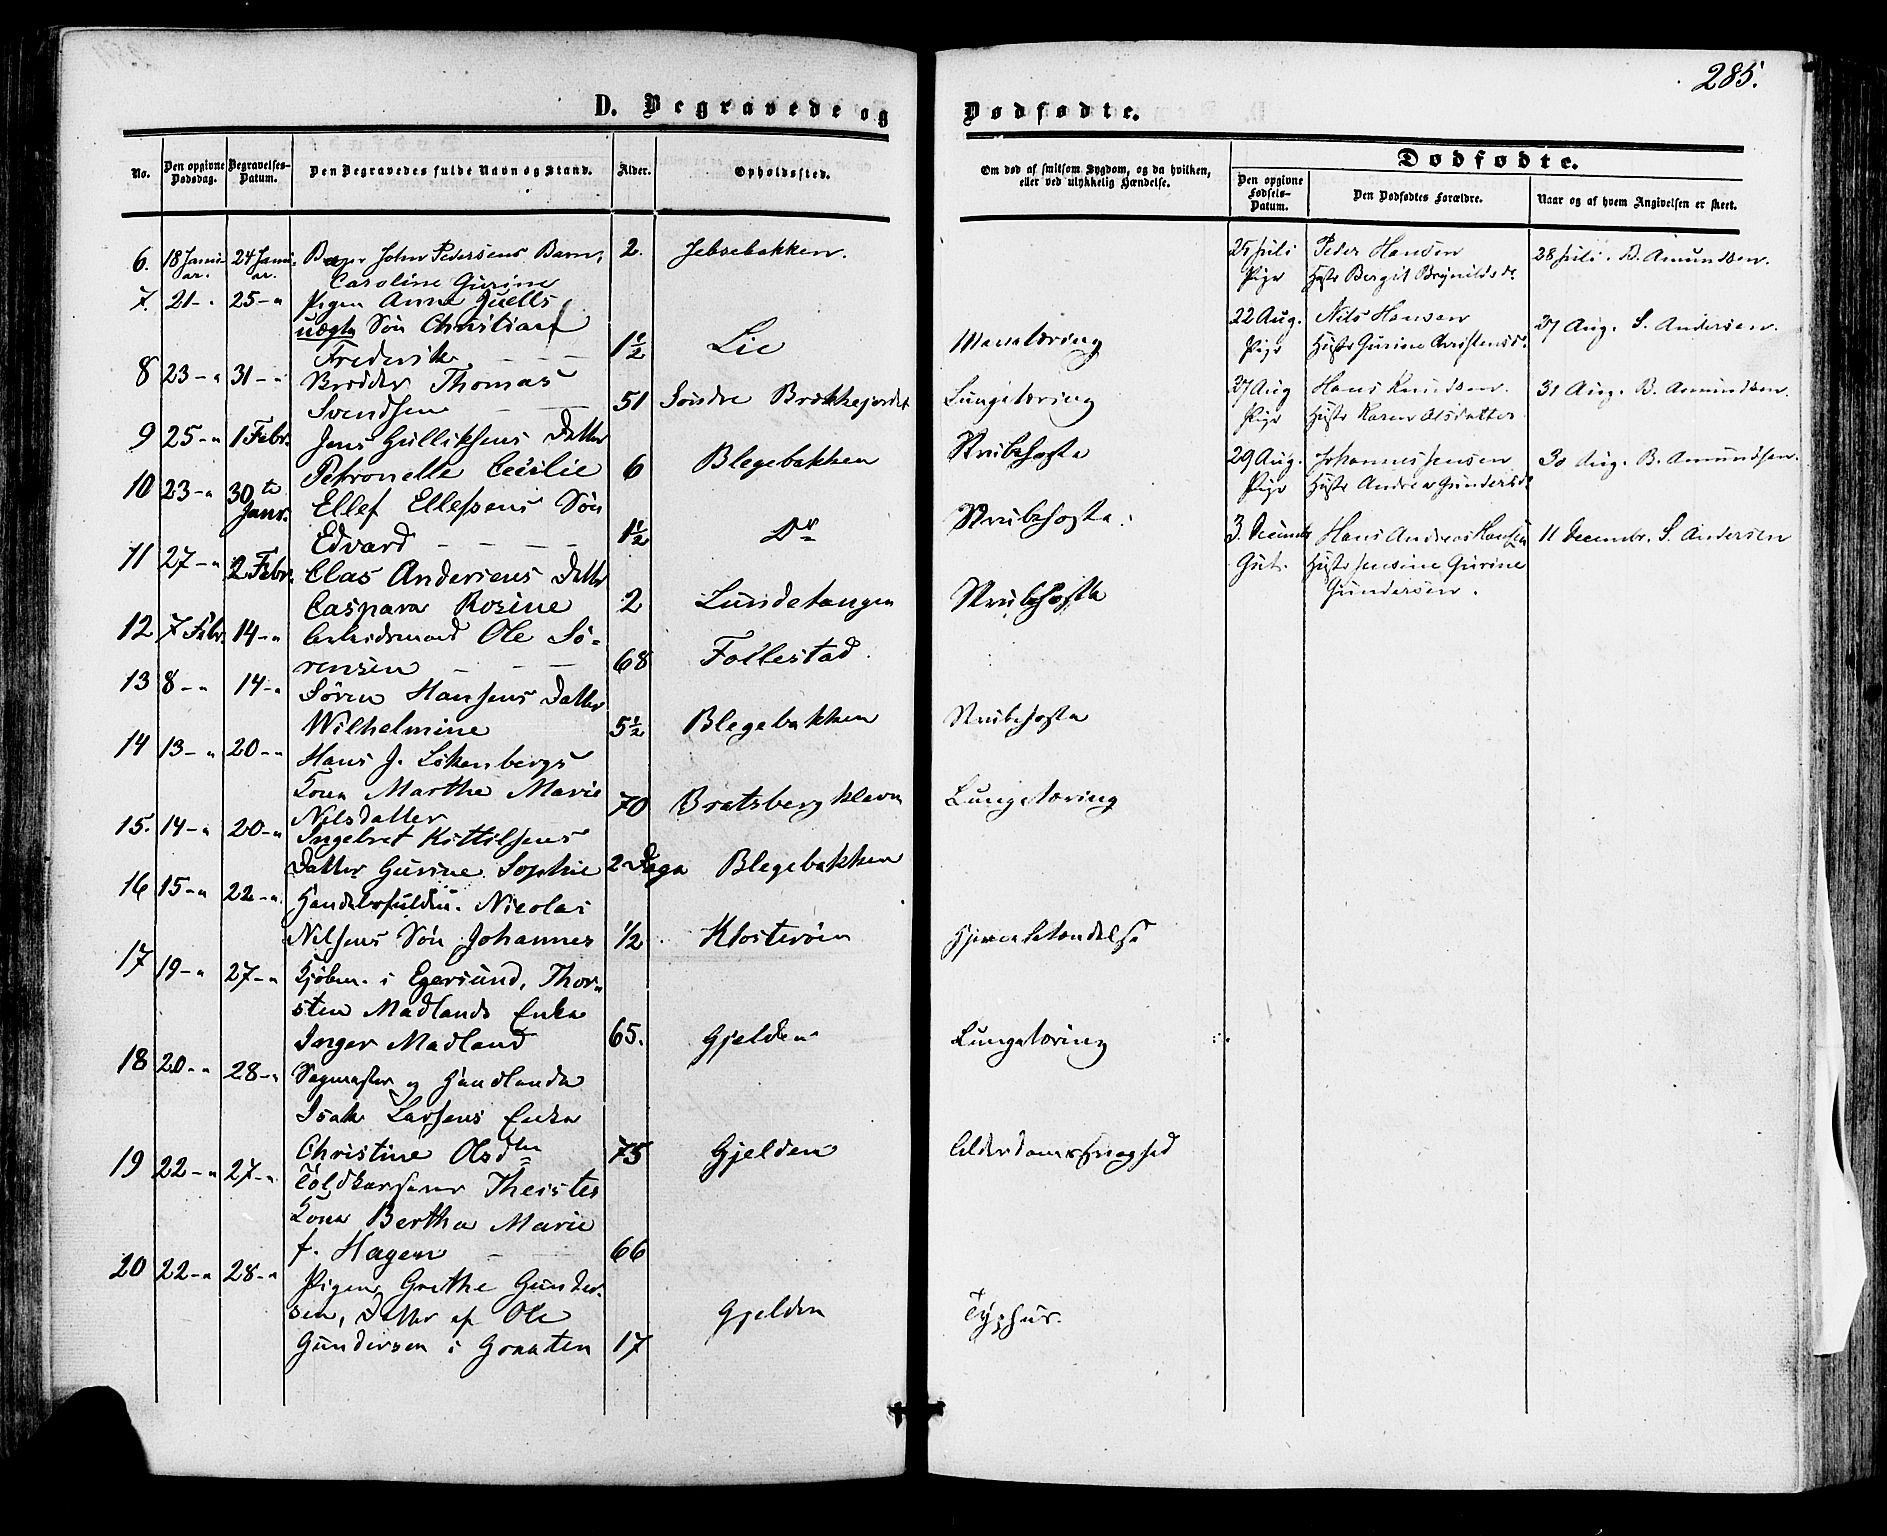 285.
D. Begravede og Dødfødte.
No. Den opgivne Dødsdag. Begravelses-Datum. Den Begravedes fulde Navn og Stand. Alder. Opholdssted.
Om død af smitsom Sygdom, og da hvilken, eller ved ulykkelig Hændelse.
Dødfødte.
Den opgivne Fødsels-Datum. Den Dødfødtes Forældre. Naar og af hvem Angivelsen er skeet.
6. 18 Janu- 24 Janu- John Pedersens Barn, 2. Jebsebakken.
ar. ar. Caroline Gurine
7. 21 - " 25 - " Pigen Anne Juells
uægte Søn Christian
Frederik - - 1½ Lie Mavetæring
8 23 - " 31 - " Brødder Thomas
Svendsen - - 51 Søndre Brækkejordet Lungetæring
9 25 - " 1 Febr. Jens Gulliksens Datter
Petronelle Cecilie 6 Blegebakken Strubehoste
10 23 - " 30te Ellef Ellefsens Søn
Janr. Edvard - - - - 1½ Do Strubehoste.
11 27 - " 2 Febr. Clas Andersens Datter
Caspara Rosine 2 Lundetangen Strubehoste
12 7 Febr. 14 - " Arbeidsmand Ole Sö-
rensen - - - 68 Follestad.
13 8 - " 14 - " Søren Hansens Datter
Wilhelmine 5½ Blegebakken Strubehoste
14 13 - " 20 - " Hans J. Løkenbergs
Kone Marthe Marie 70 Bratsbergkleven Lungetæring
Nilsdatter
15. 14 - " 20 - " Ingebret Kittilsens
Datter Gurine Sophie 2 Dage Blegebakken
16 15 - " 22 - " Nicolai
Nilsens Søn Johannes ½ Klosterøen Hjernebetændelse
17 19 - " 27 - " Kjøbm. i Egersund, Thor-
sten Madlands Enke
Inger Madland 65. Gjelden Lungetæring
18 20 - " 28 - " Sagmester og
Isak Larsens Enke
Christine Olsdtr 75 Gjelden Alderdomssvaghed
19 22 - " 27 - " Toldkasserer Theistes
Kone Bertha Marie
f. Hagen - - 66
20 22 - " 28 - " Pigen Grethe Gunder-
sen, Datter af Ole Gjelden Typhus.
Gundersen i Graaten 17
25 Juli Peder Hansen 28 Juli. B. Amundsen.
Pige Hustr Bergit Brynildsdr
22 Aug. Nils Hansen 27 Aug. S. Andersen.
Pige Hustr Gurine Christensdr.
27 Aug Hans Knudsen. 31 Aug. B. Amundsen.
Pige Hustr Karen Olsdatter
29 Aug. Johannes Jensen 30 Aug. B. Amundsen.
Pige Hustr Andrea Gundersdr
3. Decemb Hans Andreas Hansen 11 Decembr. S. Andersen
Gut. Hustr Jensine Gurine
Gundersen.